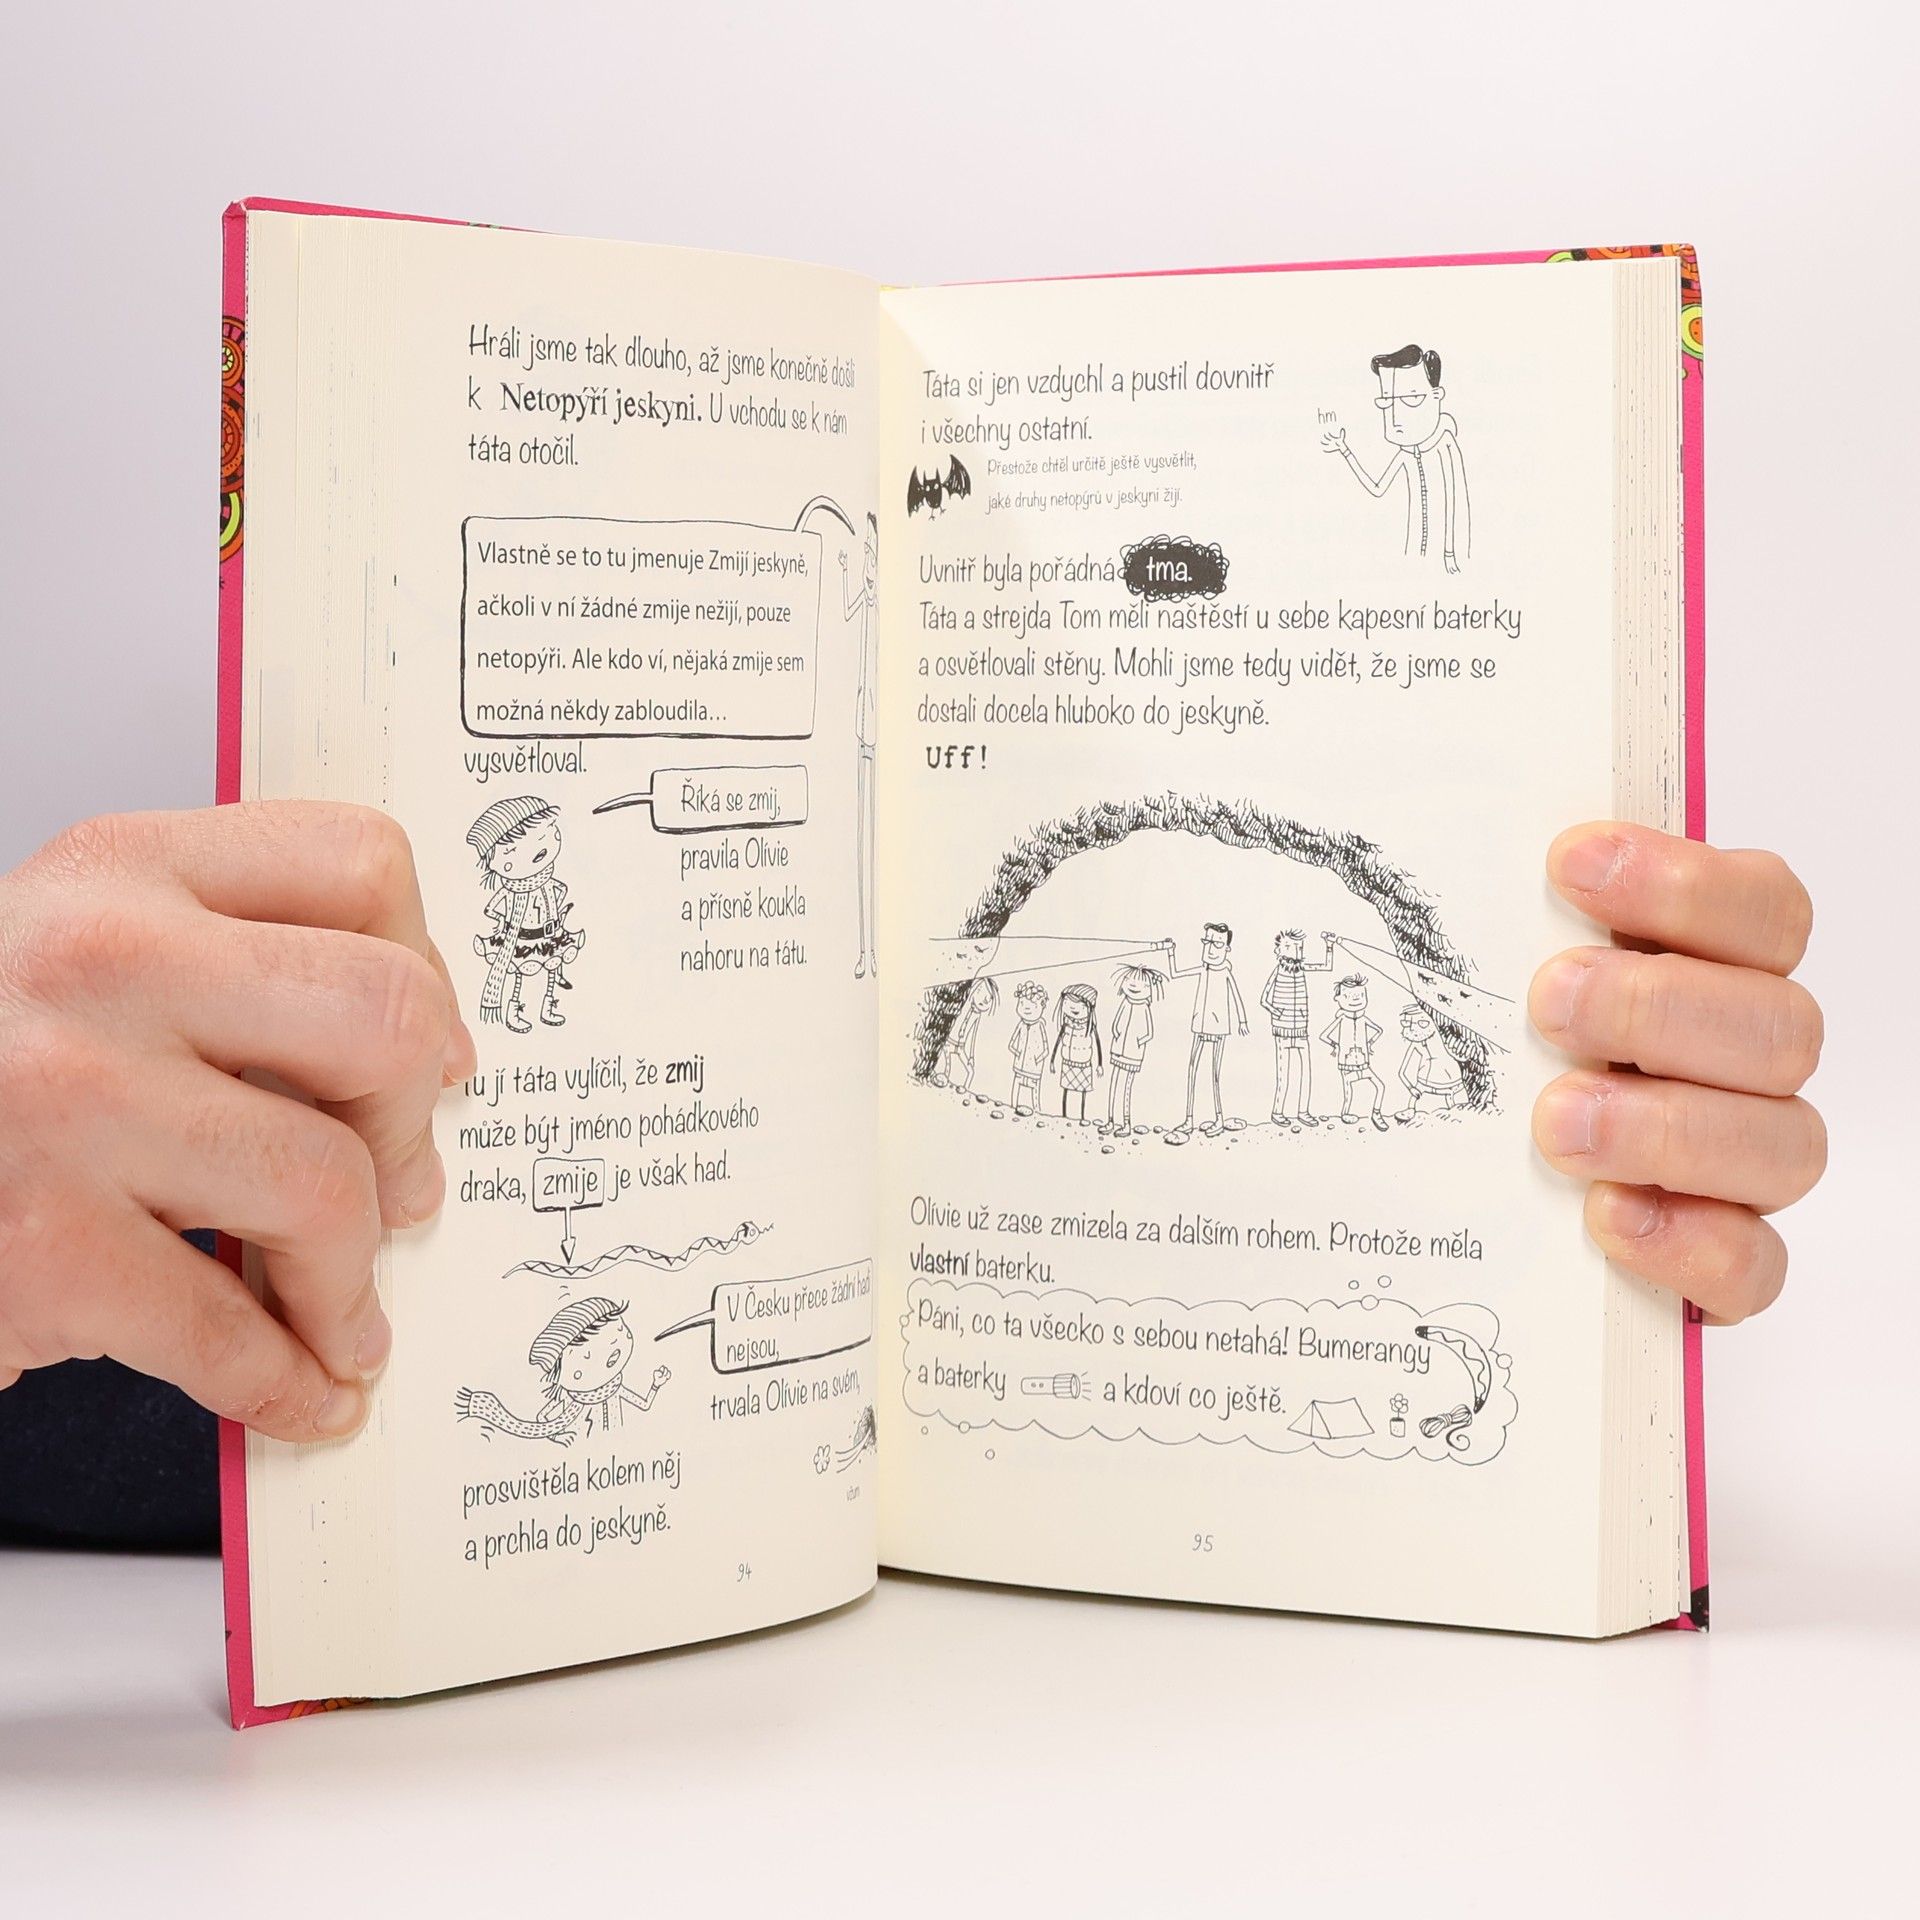 Hráli jsme tak dlouho, až jsme konečně došli
k Netopýří jeskyni. U vchodu se k nám
táta otočil.
Vlastně se to tu jmenuje Zmijí jeskyně,
ačkoli v ní žádné zmije nežijí, pouze
netopýři. Ale kdo ví, nějaká zmije sem
možná někdy zabloudila...
vysvětloval.
Říká se zmij,
pravila Olívie
a přísně koukla
nahoru na tátu.
Tu jí táta vylíčil, že zmij
může být jméno pohádkového
draka, zmije je však had.
V Česku přece žádní hadi
nejsou,
trvala Olívie na svém,
vžum
prosvištěla kolem něj
a prchla do jeskyně.
94
Táta si jen vzdychl a pustil dovnitř
i všechny ostatní.
hm
Přestože chtěl určitě ještě vysvětlit,
jaké druhy netopýrů v jeskyni žijí.
Uvnitř byla pořádná tma.
Táta a strejda Tom měli naštěstí u sebe kapesní baterky
a osvětlovali stěny. Mohli jsme tedy vidět, že jsme se
dostali docela hluboko do jeskyně.
Uff!
Olívie už zase zmizela za dalším rohem. Protože měla
vlastní baterku.
Páni, co ta všecko s sebou netahá! Bumerangy
a baterky a kdoví co ještě.
95